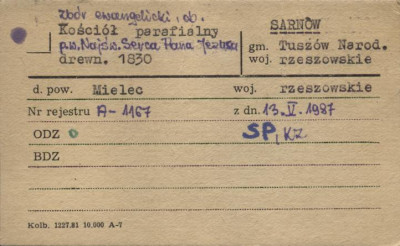 zbór ewangelicki, ob.
Kościół parafialny
p.w. Najśw. Serca Pana Jezusa
drewn. 1830
SARNÓW
gm. Tuszów Narod.
woj. rzeszowskie
d. pow. Mielec woj. rzeszowskie
Nr rejestru A-1167 z dn. 13.V.1987
ODZ SP, KZ
BDZ
Kolb. 1227.81 10,000 A-7